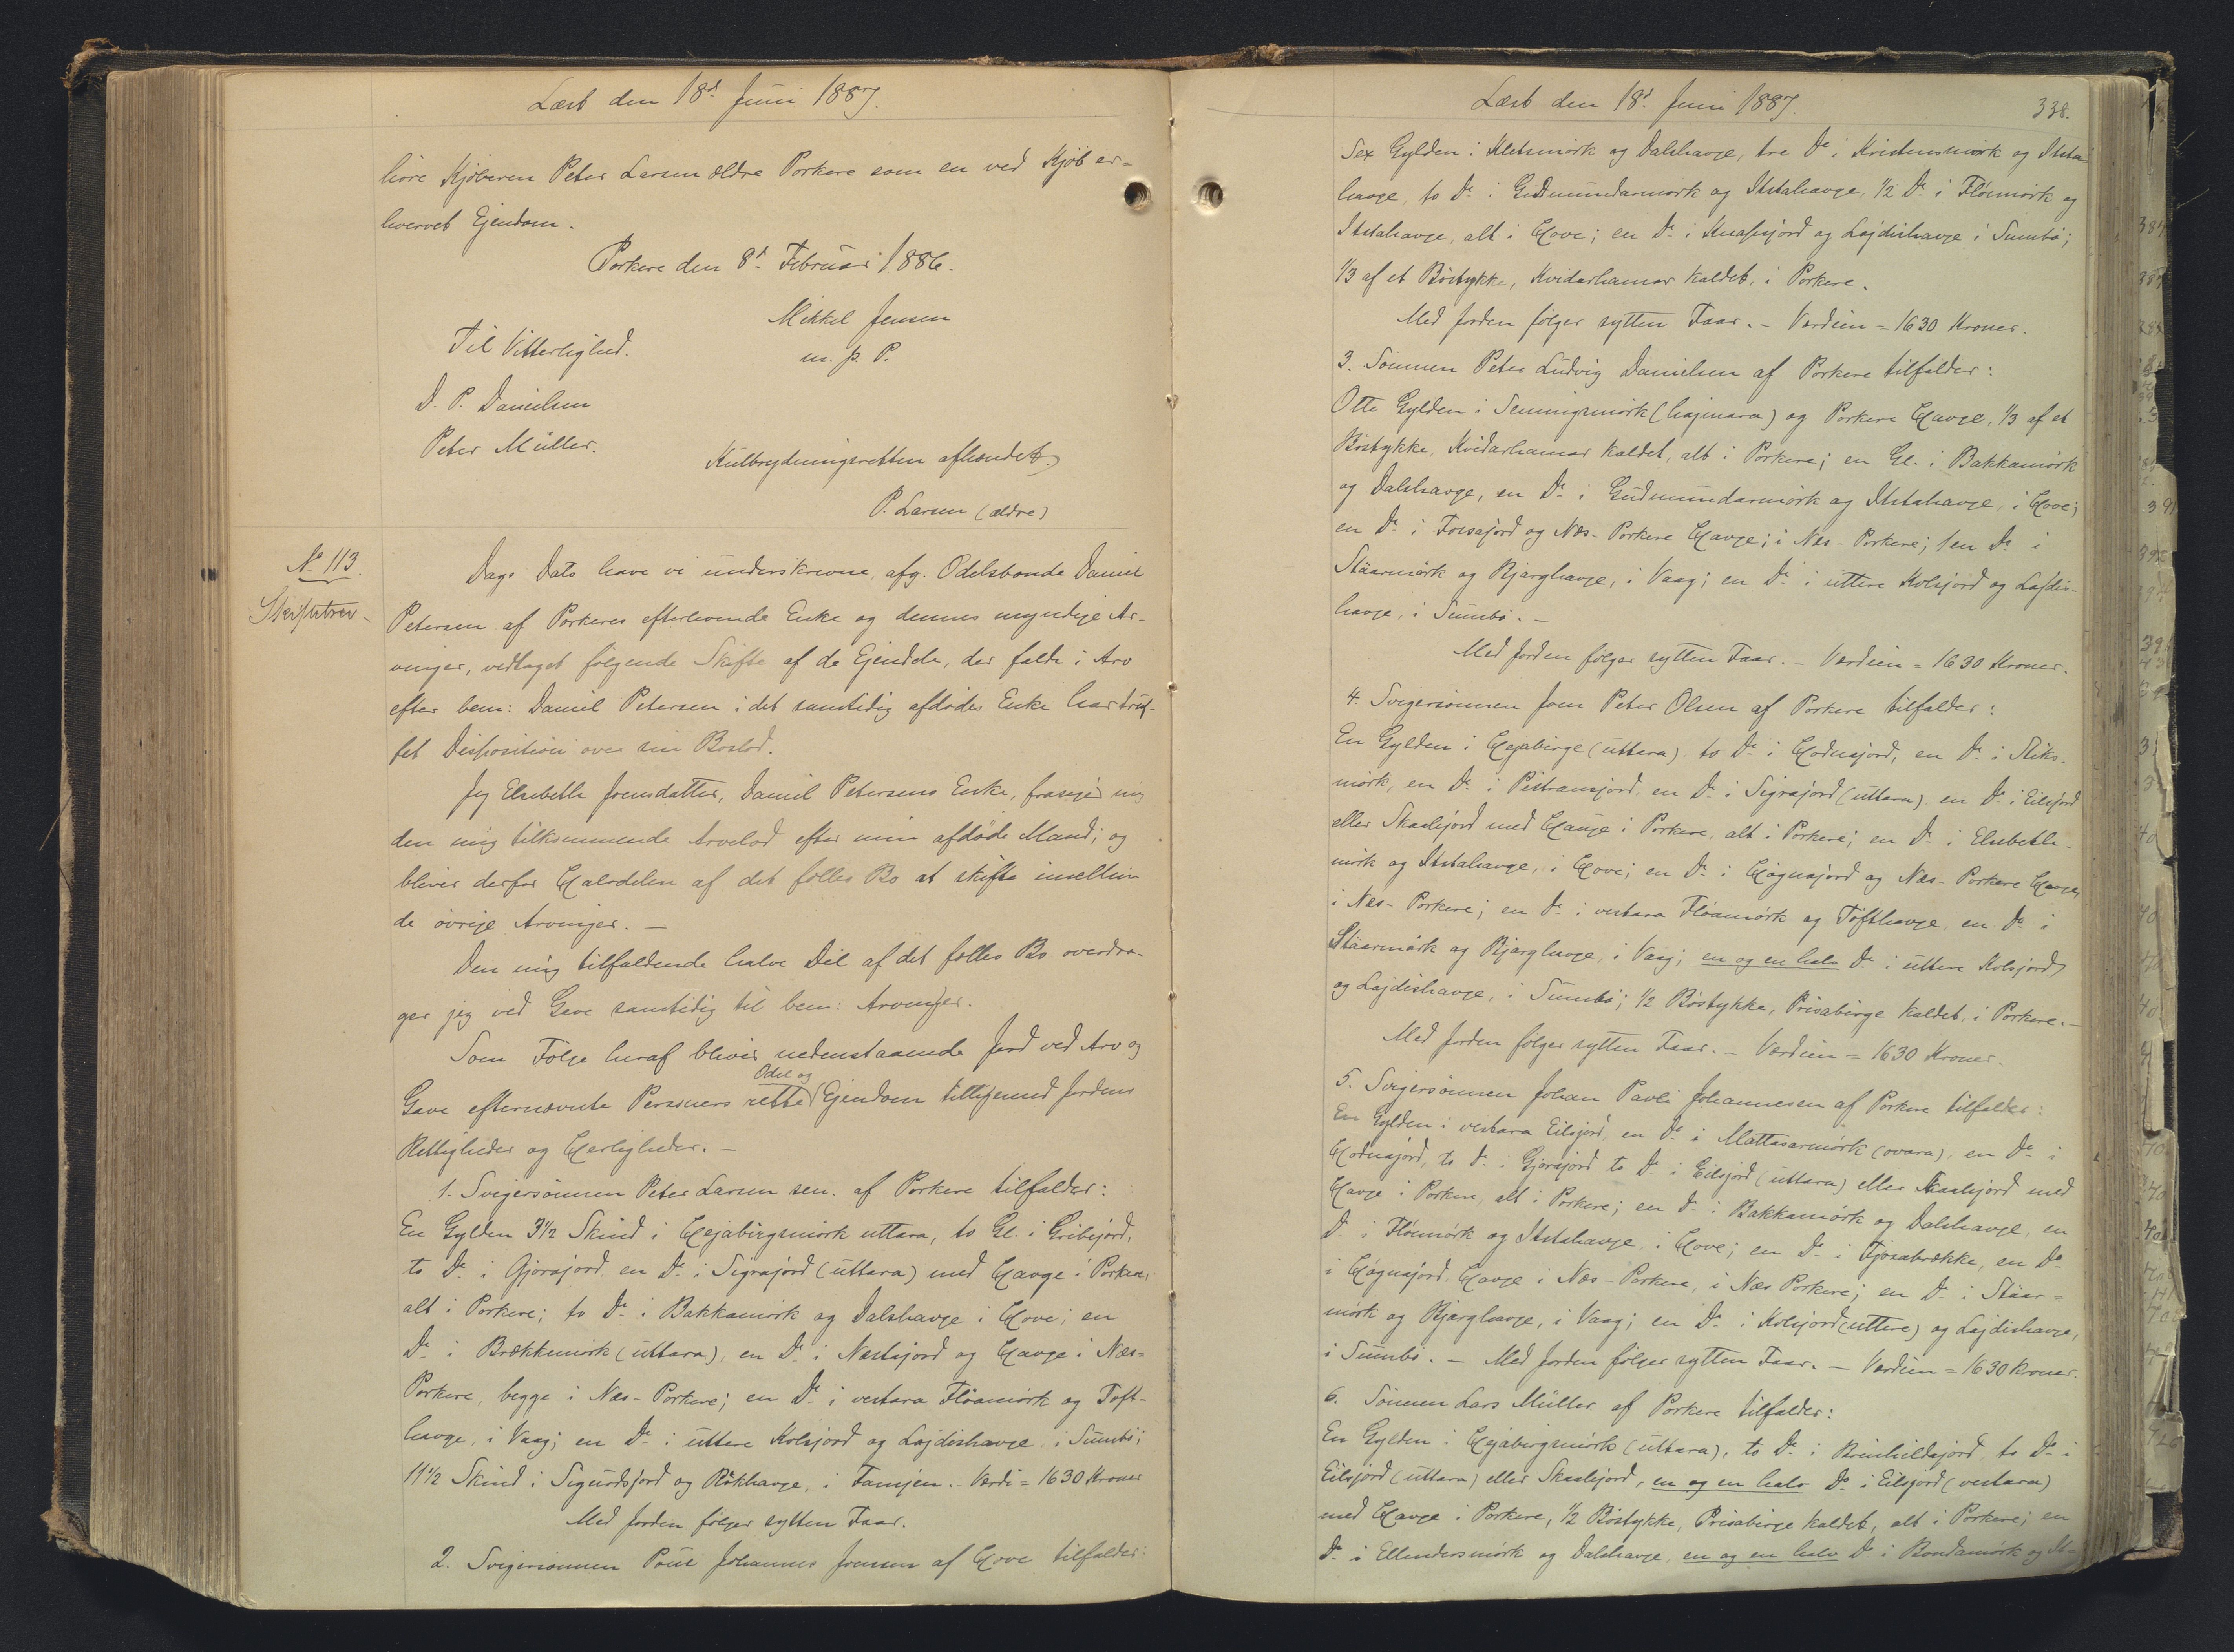 Læst den 18d Juni 1887.
høre Kjøberen Peter Larsen ældre Porkere som en ved Kjøb er=
hvervet Ejendom.
Porkere den 8d Februar 1886.
Mikkel Jensen
m. p. P.
Til Vitterlighed.
D. P. Danielsen
Peter Müller.
Kulbrydningsretten afhændet.
P. Larsen (ældre)
No 113.
Skiftebrev
Dags Dato have vi underskrevne, afg. Odelsbonde Daniel
Petersen af Porkeres efterlevende Enke og dennes myndige Ar-
vinger, vedtaget følgende Skifte af de Ejendele, der faldt i Arv
efter bem: Daniel Petersen i det samtidig afdødes Enke har truf-
fet Disposition over sin Boslod.
Jeg Elsebeth Joensdatter, Daniel Petersens Enke, frasiger mig
den mig tilkommende Arvelod efter min afdøde Mand; og
bliver derfor Halvdelen af det fælles Bo at skifte imellem
de øvrige Arvinger. —
Den mig tilfaldende halve Del af det fælles Bo overdra-
ger jeg ved Gave samtidig til bem: Arvinger.
Som Følge heraf bliver nedenstaaende Jord ved Arv og
Odel og
Gave efternævnte Personers rette Ejendom tilligemed Jordens
Rettigheder og Herligheder. —
1. Svigersønnen Peter Larsen sen. af Porkere tilfalder:
En Gylden 3 1/2 Skind i Hejabirgsmørk uttara, to Gl. i Gribsjørd,
to Do i Gjørajørd, en Do i Sigrajørd (uttara) med Havge i Porkere,
alt i Porkere; to Do i Bakkamørk og Dalshavge i Hove; en
Do i Brækkemørk (uttara), en Do i Nestajord og Havge i Næs=
Porkere, begge i Næs-Porkere; en Do i vestara Fløamørk og Toft-
havge, i Vaag; en Do i uttere Kolsjord og Lajdishavge, i Sumbø;
11 1/2 Skind i Sigurdsjord og Røkhavge, i Famjen. Værdi = 1630 Kroner
Med Jorden følger sytten Faar.
2. Svigersønnen Poul Johannes Joensen af Hove tilfalder:
Læst den 18d Juni 1887.
338.
Sex Gylden i Kletsmørk og Dalshavge, tre Do i Kristensmørk og Itsta-
havge, to Do i Gudmundarmørk og Itstahavge, 1/2 Do i Fløemørk og
Itstahavge, alt i Hove; en Do i Knassjørd og Lajdishavge i Sumbø;
1/3 af et Bøstykke, Kvidarhamar kaldet, i Porkere.
Med Jorden følger sytten Faar. — Værdien = 1630 Kroner.
3. Sønnen Peter Ludvig Danielsen af Porkere tilfalder:
Otte Gylden i Senningsmørk (hajmara) og Porkere Havge, 1/3 af et
Bøstykke, Kvidarhamar kaldet, alt i Porkere; en Gl. i Bakkamørk
og Dalshavge, en Do i Gudmundarmørk og Itstahavge, i Hove;
en Do i Forsajord og Næs-Porkere Havge; i Næs-Porkere; en Do i
Stäarmørk og Bjarghavge, i Vaag; en Do i uttere Kolsjord og Lajdis-
havge, i Sumbø. —
Med Jorden følger sytten Faar. — Værdien = 1630 Kroner.
4. Svigersønnen Joen Peter Olsen af Porkere tilfalder:
En Gylden i Hejabirge (uttara) to Do i Hodnajord, en Do i Stiks-
mørk, en Do i Pætransjord, en Do i Sigrajord (uttara) en Do i Eilsjord
eller Skaalijord med Havge i Porkere, alt i Porkere; en Do i Elsebeth-
mørk og Itstahavge, i Hove; en Do i Høgnajord og Næs-Porkere Havge,
i Næs-Porkere; en Do i vestara Fløamørk og Tofthavge, en Do i
Stäarmørk og Bjarghavge, i Vaag; en og en halv Do i uttere Kolsjord
og Lajdishavge, i Sumbø; 1/2 Bøstykke, Prisabirge kaldet, i Porkere. —
Med Jorden følger sytten Faar. — Værdien = 1630 Kroner.
5. Svigersønnen Johan Pavli Johannesen af Porkere tilfalder:
En Gylden i vestara Eilsjord, en Do i Mattasarmørk (ovara), en Do i
Hodnajord, to Do i Gjørajord to Do i Eilsjord (uttara) eller Skaalijord med
Havge i Porkere, alt i Porkere; en Do i Bakkamørk og Dalshavge, en
Do i Fløemørk og Itstahavge, i Hove; en Do i Tjosabrække, en Do
i Høgnajord, Havge i Næs-Porkere, i Næs Porkere; en Do i Stäar=
mørk og Bjarghavge, i Vaag; en Do i Kolsjord (uttere) og Lajdishavge,
i Sumbø. — Med Jorden følger sytten Faar. — Værdien = 1630 Kroner.
6. Sønnen Lars Müller af Porkere tilfalder:
En Gylden i Hejabirgsmørk (uttara), to Do i Brinhildsjord, to Do i
Eilsjord (uttara) eller Skaalijord, en og en halv Do i Eilsjord (vestara)
med Havge i Porkere, 1/2 Bøstykke, Prisabirge kaldet, alt i Porkere; en
Do i Ellindersmørk og Dalshavge, en og en halv Do i Bondamørk og It-